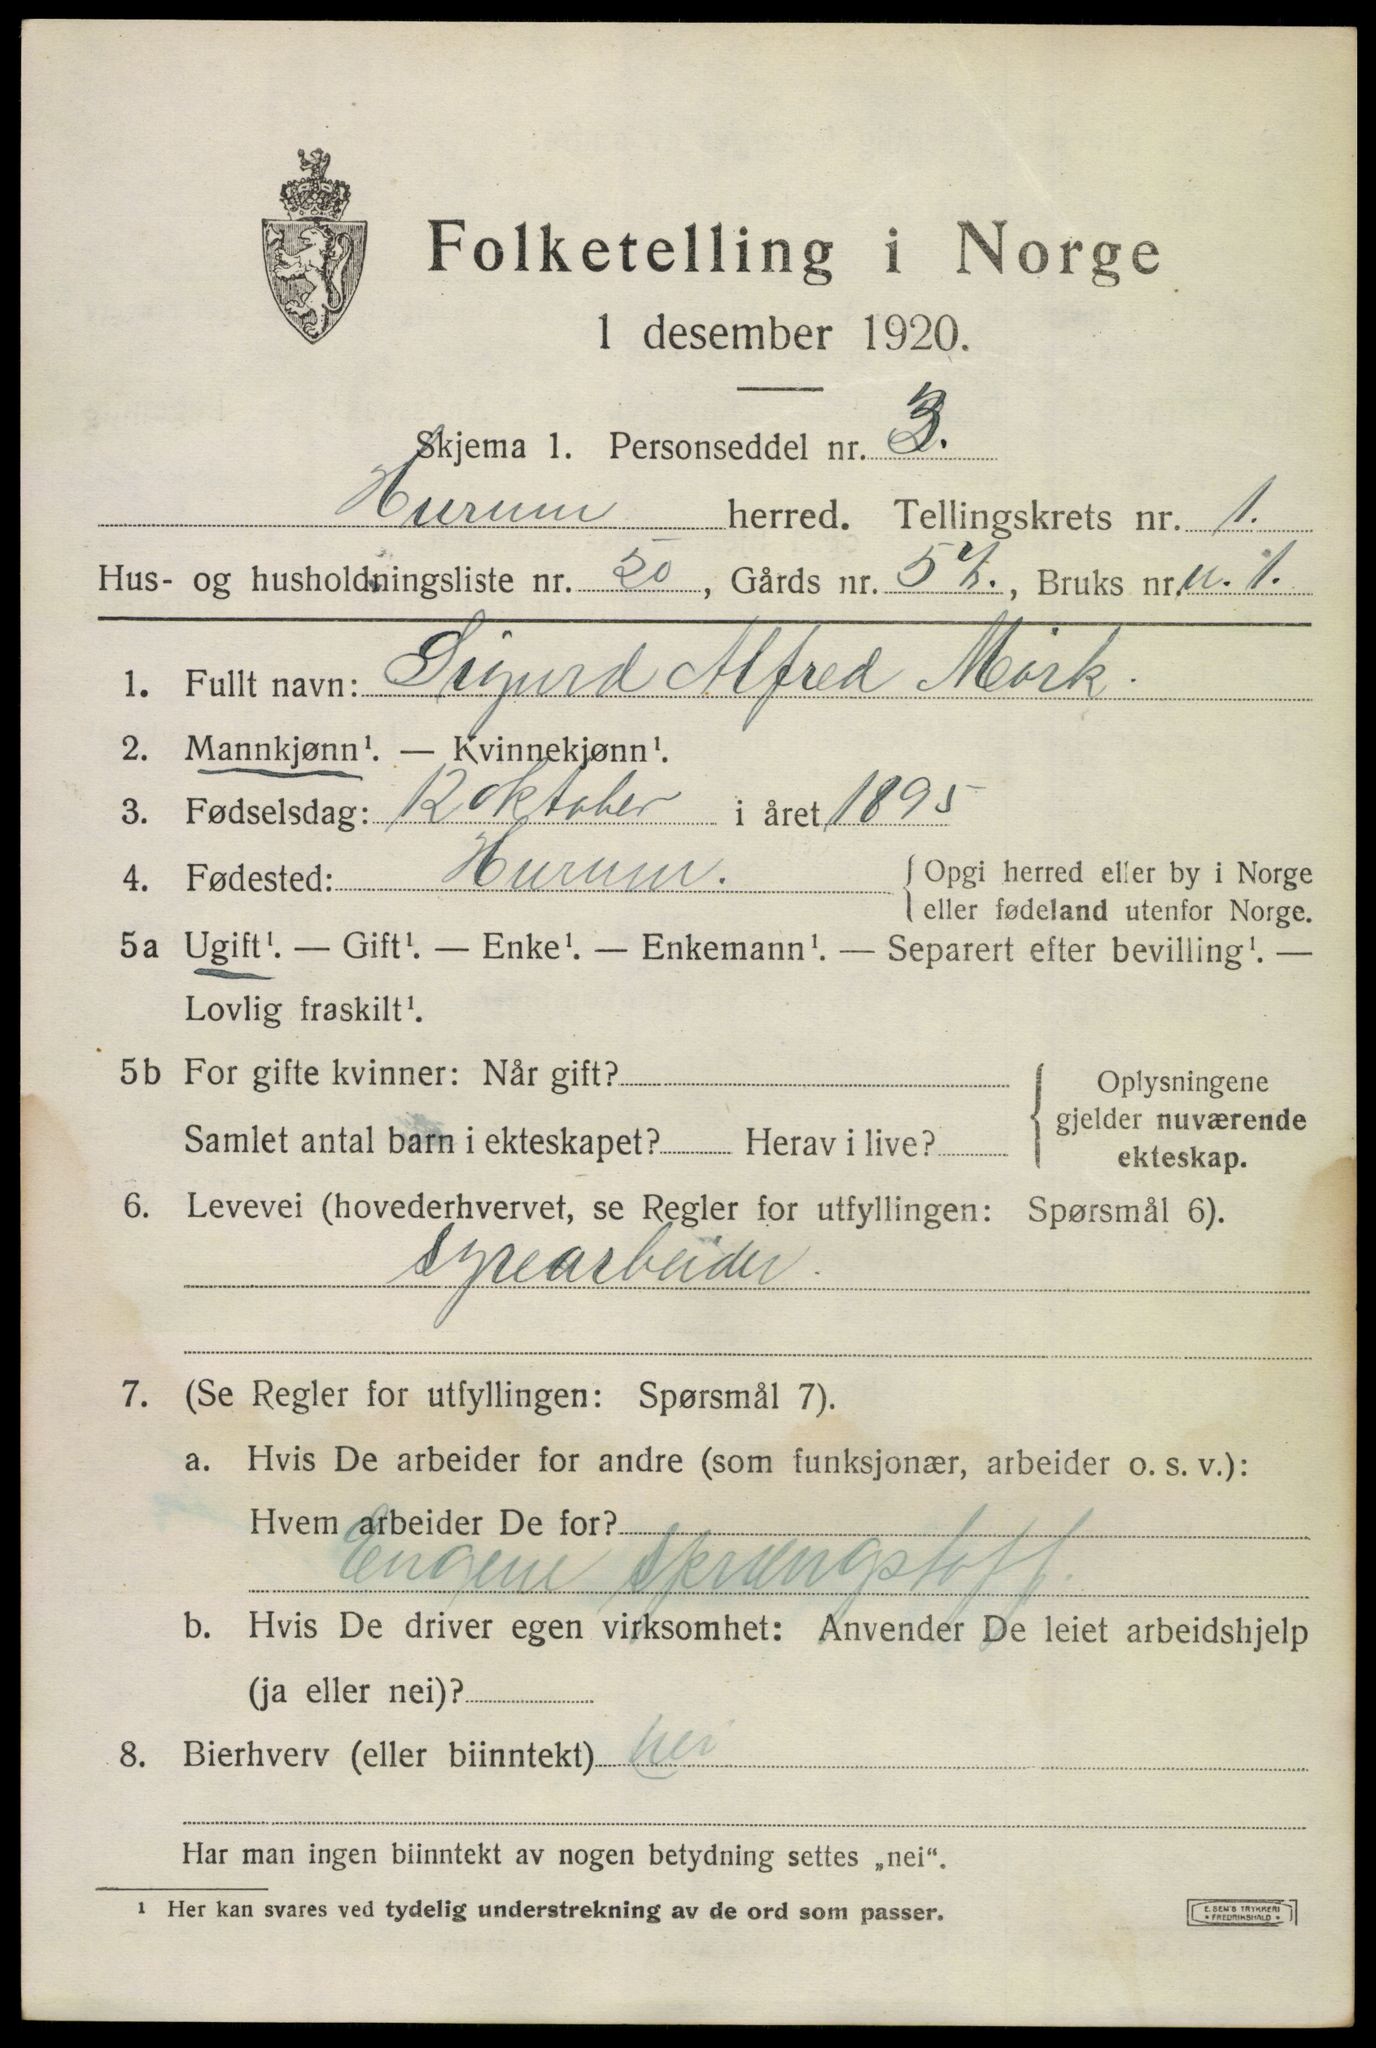 Folketelling i Norge
1 desember 1920.
Skjema 1. Personseddel nr. 3.
Hurum herred. Tellingskrets nr. 1.
Hus- og husholdningsliste nr. 50, Gårds nr. 57., Bruks nr. u. 1.
1. Fullt navn: Sigurd Alfred Mörk.
2. Mannkjønn¹. — Kvinnekjønn¹.
3. Fødselsdag: 12 oktober i året 1895
4. Fødested: Hurum. { Opgi herred eller by i Norge
eller fødeland utenfor Norge.
5a Ugift¹. — Gift¹. — Enke¹. — Enkemann¹. — Separert efter bevilling¹. —
Lovlig fraskilt¹.
5b For gifte kvinner: Når gift?
Samlet antal barn i ekteskapet? Herav i live?
{ Oplysningene
gjelder nuværende
ekteskap.
6. Levevei (hovederhvervet, se Regler for utfyllingen: Spørsmål 6).
Syrearbeider.
7. (Se Regler for utfyllingen: Spørsmål 7).
a. Hvis De arbeider for andre (som funksjonær, arbeider o. s. v.):
Hvem arbeider De for?
Engene Sprængstoff.
b. Hvis De driver egen virksomhet: Anvender De leiet arbeidshjelp
(ja eller nei)?
8. Bierhverv (eller biinntekt) nei
Har man ingen biinntekt av nogen betydning settes „nei“.
¹ Her kan svares ved tydelig understrekning av de ord som passer.
E. SEM'S TRYKKERI
• FREDRIKSHALD •